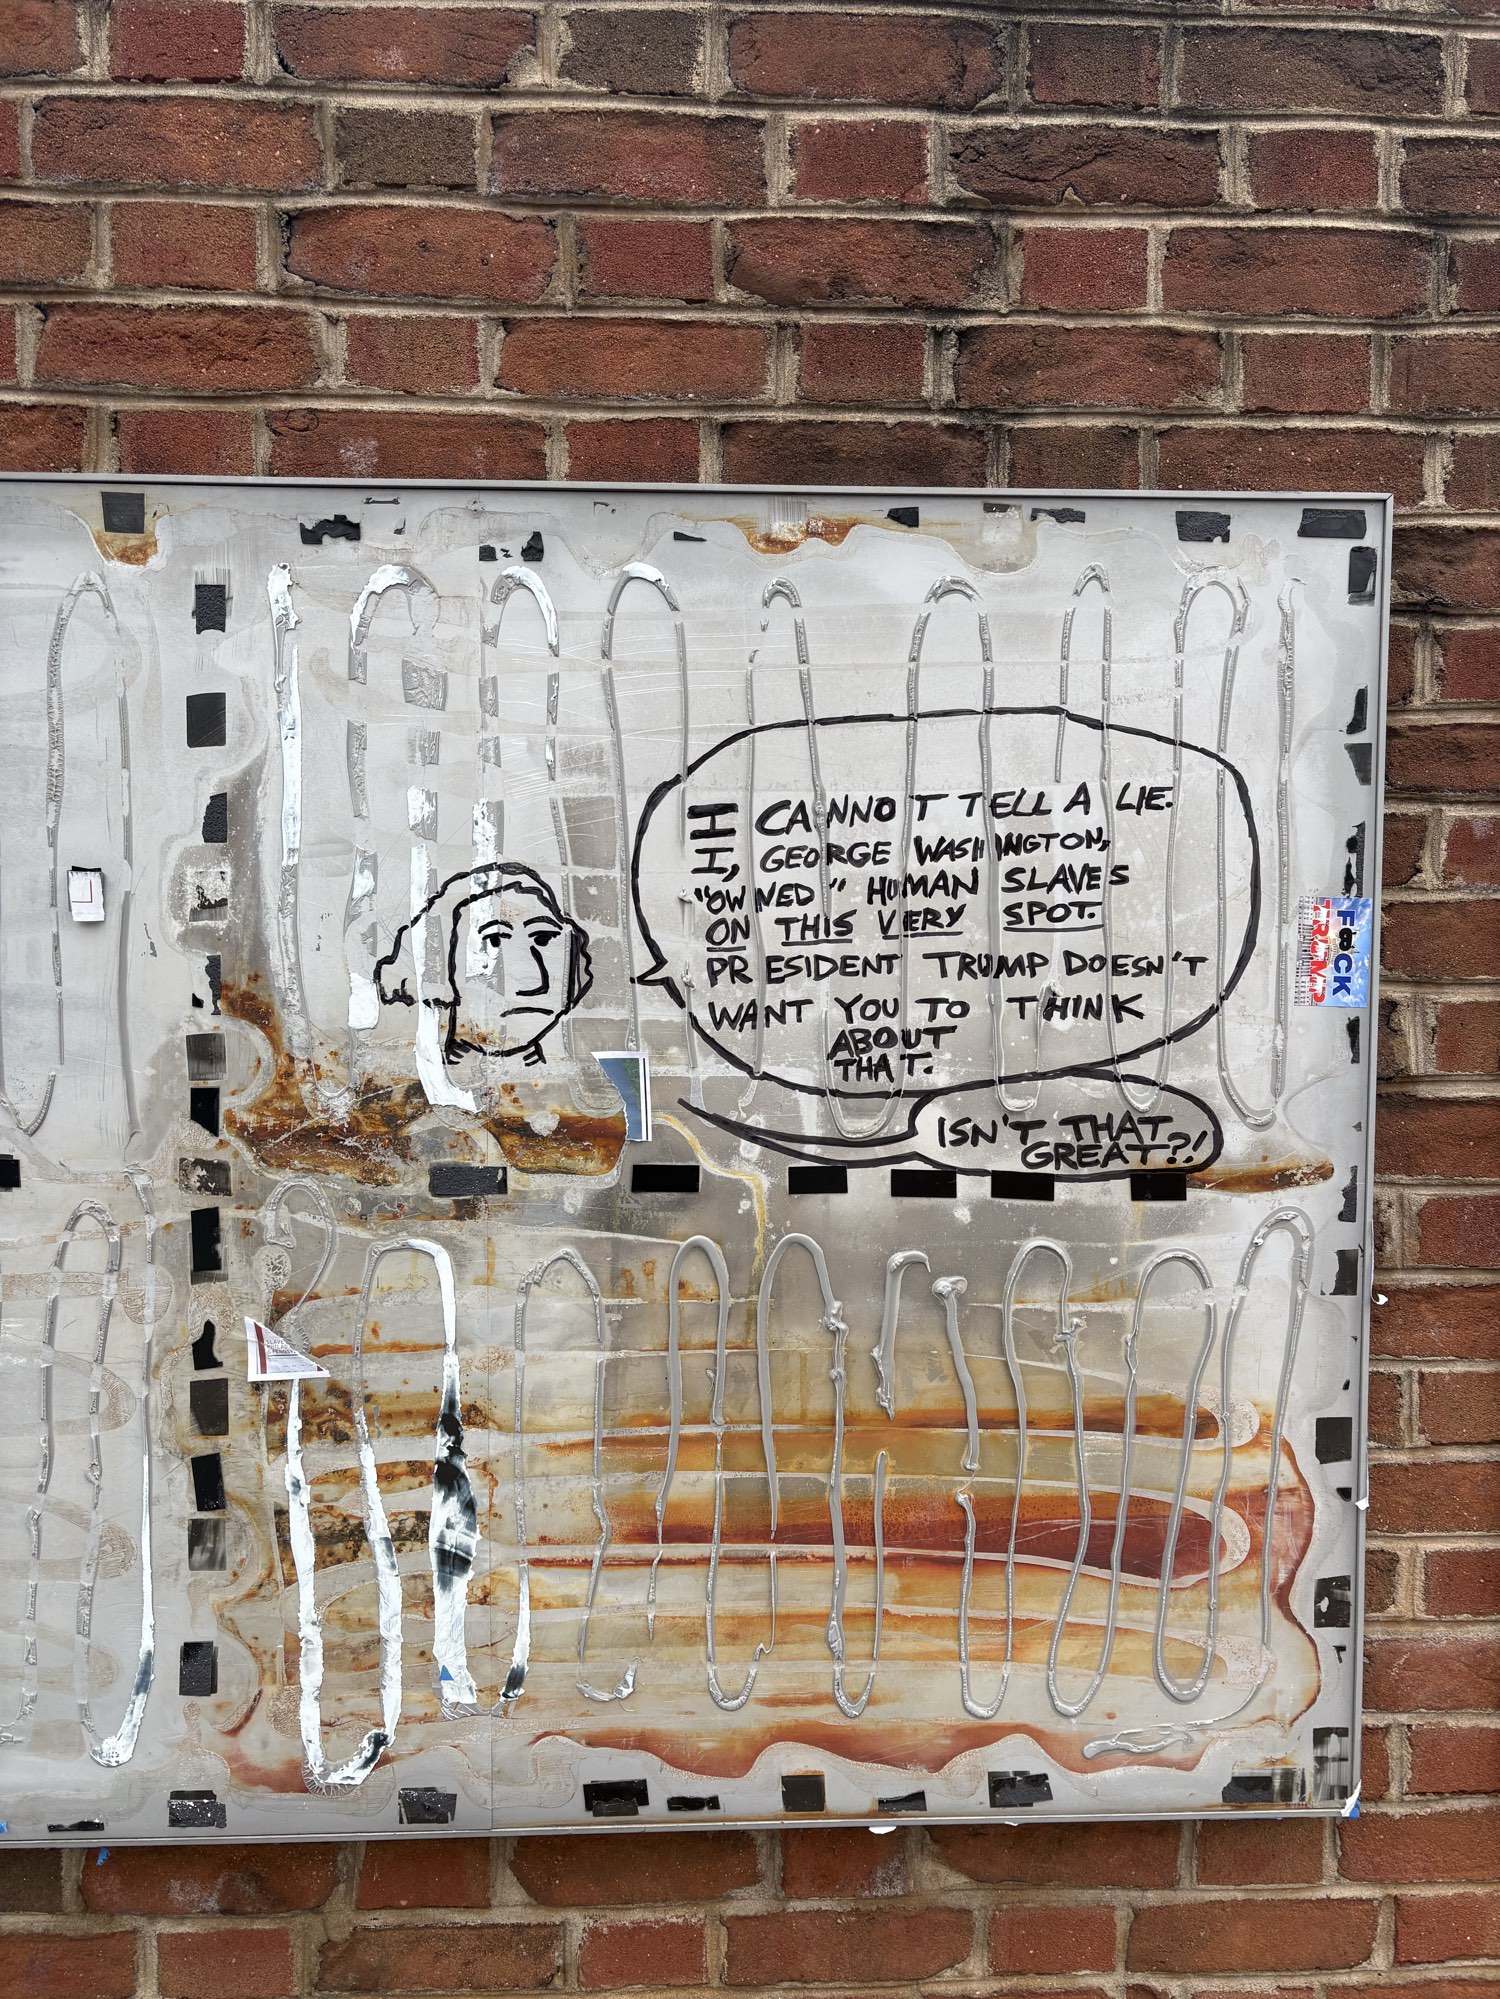 I CANNOT TELL A LIE.
I, GEORGE WASHINGTON,
"OWNED" HUMAN SLAVES
ON THIS VERY SPOT.
PRESIDENT TRUMP DOESN'T
WANT YOU TO THINK
ABOUT
THAT.
ISN'T THAT
GREAT?!
F*CK
TRUMP
SLAVE